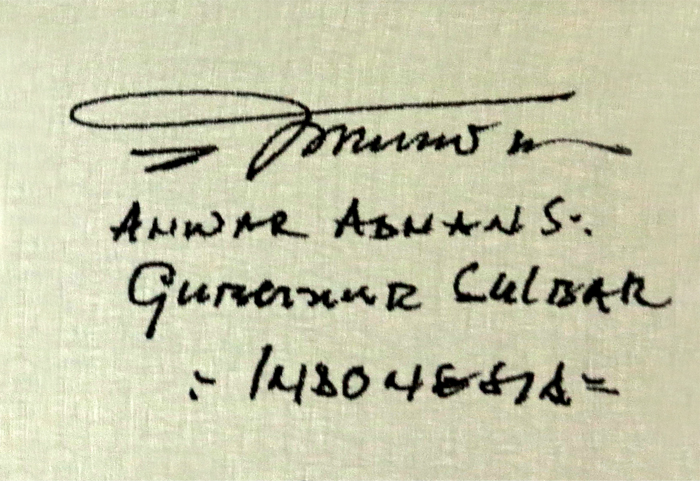 Anwar Adnan S.
Gubernur Sulbar
- Indonesia -